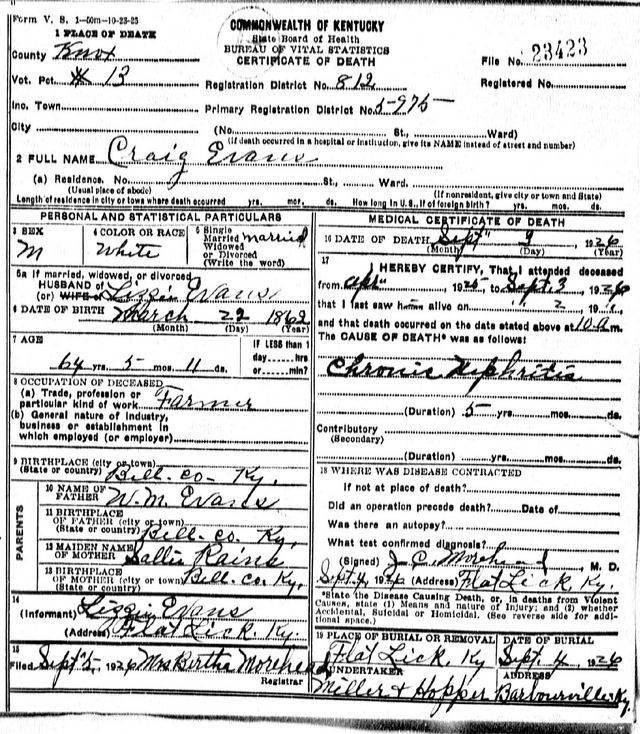 Form V. S. 1—50m—10-23-25
1 PLACE OF DEATH
COMMONWEALTH OF KENTUCKY
State Board of Health
BUREAU OF VITAL STATISTICS
CERTIFICATE OF DEATH
File No. 23423
County Knox
Vot. Pct. 13
Registration District No. 812
Registered No.
Inc. Town
Primary Registration District No. 5-975-
City (No. St., Ward)
(If death occurred in a hospital or institution, give its NAME instead of street and number)
2 FULL NAME Craig Evans
(a) Residence. No. St., Ward.
(Usual place of abode) (If nonresident, give city or town and State)
Length of residence in city or town where death occurred yrs. mos. ds. How long in U. S., if of foreign birth? yrs. mos. ds.
PERSONAL AND STATISTICAL PARTICULARS
3 SEX
M
4 COLOR OR RACE
White
5 Single
Married
Widowed
or Divorced
(Write the word)
Married
5a If married, widowed, or divorced
HUSBAND of
(or) WIFE of Lizzie Evans
6 DATE OF BIRTH March 22 1862
(Month) (Day) (Year)
7 AGE
64 yrs. 5 mos. 11 ds.
IF LESS than 1
day, hrs
or min?
8 OCCUPATION OF DECEASED
(a) Trade, profession or
particular kind of work Farmer
(b) General nature of industry,
business or establishment in
which employed (or employer)
9 BIRTHPLACE (city or town)
(State or country) Bell. co. Ky.
PARENTS
10 NAME OF
FATHER W. M. Evans
11 BIRTHPLACE
OF FATHER (city or town)
(State or country) Bell. co. Ky.
12 MAIDEN NAME
OF MOTHER Sallie Rains
13 BIRTHPLACE
OF MOTHER (city or town) Bell. co. Ky.
(State or country)
14
(Informant) Lizzie Evans
(Address) Flat Lick. Ky.
15
Filed Sept 5, 1926 Mrs Bertha Morehead
Registrar
MEDICAL CERTIFICATE OF DEATH
16 DATE OF DEATH Sept 1926
(Month) (Day) (Year)
17
I HEREBY CERTIFY, That I attended deceased
from 1925, to Sept. 3, 1926
that I last saw him alive on 2, 19
and that death occurred on the date stated above at 10 a m.
The CAUSE OF DEATH* was as follows:
Chronic Nephritis
(Duration) 5 yrs. mos. ds.
Contributory
(Secondary)
(Duration) yrs. mos. ds.
18 WHERE WAS DISEASE CONTRACTED
If not at place of death?
Did an operation precede death? Date of
Was there an autopsy?
What test confirmed diagnosis?
(Signed) J. C. Morehead, M. D.
Sept 4, 1926 (Address) Flat Lick, Ky.
*State the Disease Causing Death, or, in deaths from Violent
Causes, state (1) Means and nature of Injury; and (2) whether
Accidental, Suicidal or Homicidal. (See reverse side for addi-
tional space.)
19 PLACE OF BURIAL OR REMOVAL
Flat Lick. Ky
DATE OF BURIAL
Sept. 4 1926
UNDERTAKER
Miller & Hopper
ADDRESS
Barbourville Ky.